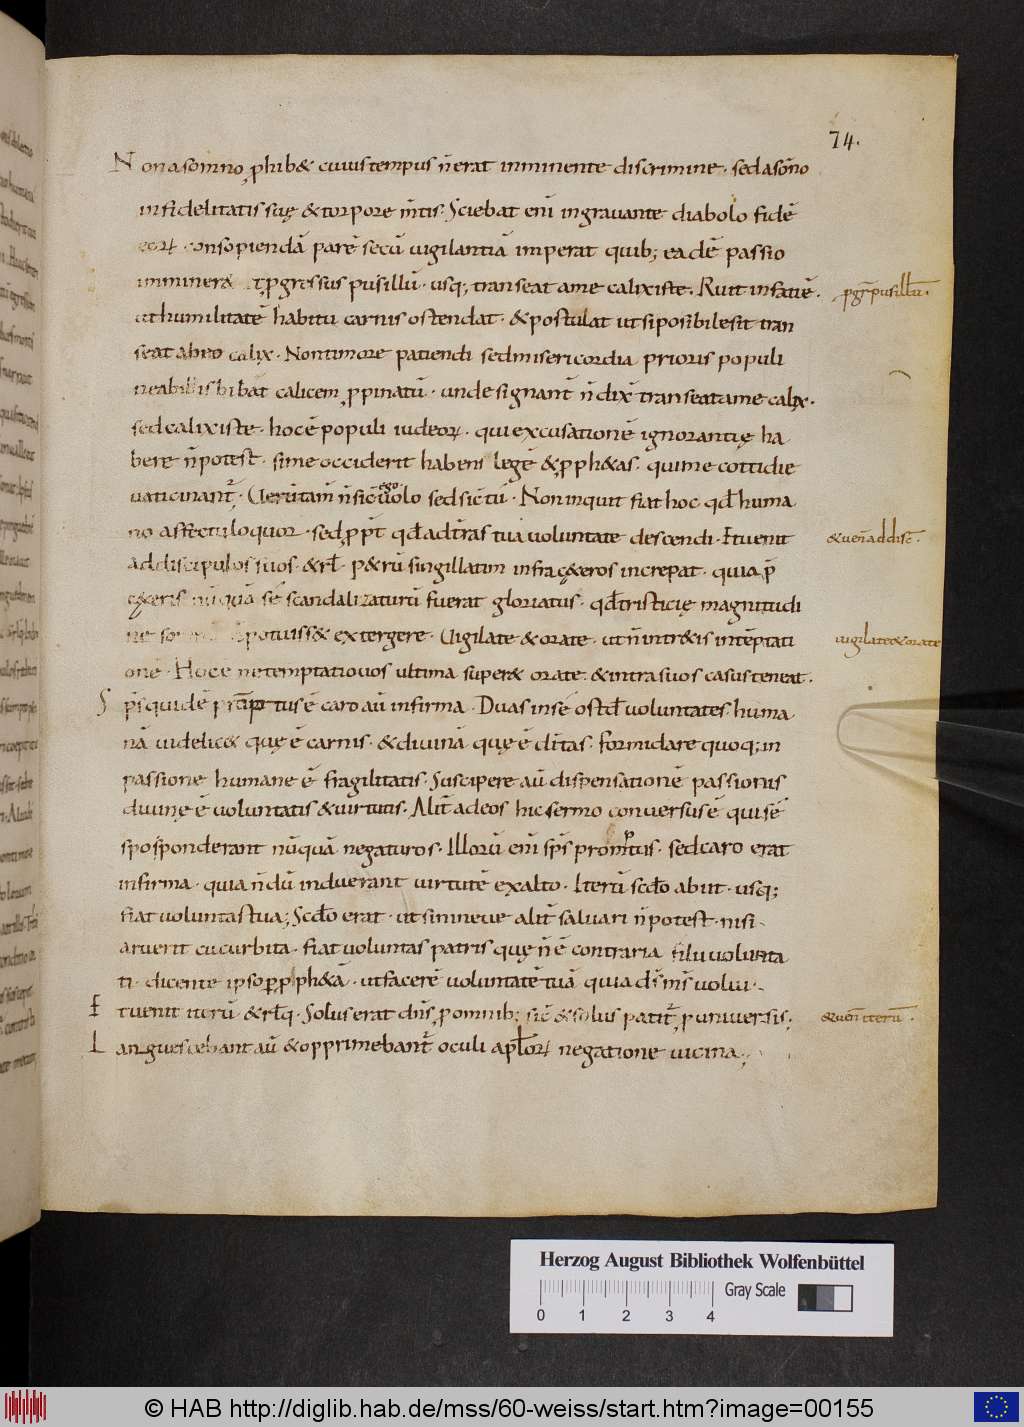 74.
Non a somno ꝓhib& cuius tempus n̄ erat inminente discrimine · sed a som̄no
infidelitatis suę & torpore m̄tis · Sciebat enī ingravante diabolo fidē
eorꝝ consopiendā parē secū vigilantiā imperat quib; eadē passio
ꝓgressus pusillū · usq; transeat a me calix iste · Ruit in faciē ·
ꝓgr̄ pusillū ·
ut humilitatē habitu carnis ostendat · & postulat ut si posibile sit tran
seat ab eo calix · Non timore patiendi sed misericordia prioris populi
ne ab illis bibat calicem ꝓpinatū · unde signant̄ n̄ dix̄ transeat a me calix ·
sed calix iste · hoc ē populi iudeorꝝ · qui excusationē ignorantię ha
bere n̄ potest · si me occiderit habens legē & ꝓph&as · qui me cottidie
vaticinant̄ · Veru̅tam̄ n̄ sic̄ ego volo sed sic̄ tu · Non inquit fiat hoc qđ huma
no affectu loquor · sed ꝓpt̄ qđ ad t̄ras tua voluntate descendi · Et venit
& ven̄ ad disc̄ ·
ad discipulos suos · & rł · p&rū singillatim infra c&eros increpat · quia p̄
c&eris nū quā sē scandalizaturū fuerat gloriatus · qđ tristicię magnitudi
potuiss& extergere · Vigilate & orate · ut n̄ intr&is in tēptati
vigilate & orate
onē · Hoc ē ne temptatio vos ultima super& orate · & intra suos casus teneat ·
Sps̄ quidē prōptus ē caro aū infirma · Duas in sē ostđ voluntates · huma
nā videlic& quę ē carnis · & divinā quę ē dītas · formidare quoq; in
passione humane ē fragilitatis · Suscipere aū dispensationē passionis
divinę ē voluntatis & virtutis · Alit̄ ad eos hic sermo conversus ē qui sē
sposponderant nū quā negaturos · Illorū enī sps̄ promptus · sed caro erat
infirma · quia n̄dū induerant virtutē ex alto · Iterū scđo abiit · usq;
fiat voluntas tua; Scđo erat · ut si nineve alit̄ salvari n̄ potest · nisi
aruerit cucurbita · fiat voluntas patris quę n̄ ē contraria filii volunta
ti · dicente ipso ꝑ ꝓph&ā · ut facerē voluntatē tuā quia ds̄ ms̄ volui ·
Et venit iterū & rłq · Solus erat dn̄s ꝓ omnib; sic̄ & solus patit̄ ꝓ universis;
& ven̄ iterū ·
Languescebant aū & opprimebant̄ oculi apłorꝝ negatione vicina;
Herzog August Bibliothek Wolfenbüttel
Gray Scale
0 1 2 3 4
© HAB http://diglib.hab.de/mss/60-weiss/start.htm?image=00155